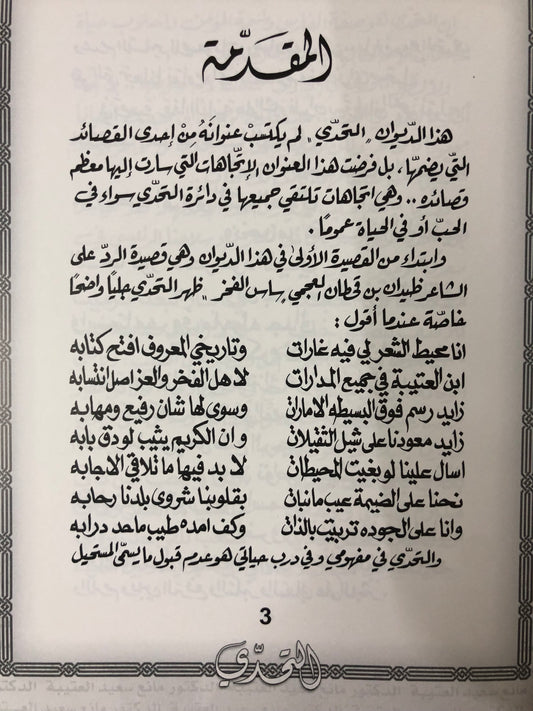 المقدّمة
هذا الديوان "التحدّي" لم يكتسب عنوانه من إحدى القصائد
التي يضمها، بل فرضت هذا العنوان الإتجاهات التي سارت إليها معظم
قصائده .. وهي اتجاهات تلتقي جميعها في دائرة التحدّي سواء في
الحبّ أو في الحياة عموماً .
وابتداء من القصيدة الأولى في هذا الديوان وهي قصيدة الردّ على
الشاعر ظيدان بن قحطان العجمي "ساس الفخر" ظهر التحدّي جلياً واضحاً
خاصّة عندما أقول :
انا محيط الشعر لي فيه غارات وتاريخي المعروف افتح كتابه
ابن العتيبة في جميع المدارات لاهل الفخر والعز اصل انتسابه
زايد رسم فوق البسيطه الامارات وسوى لها شان رفيع ومهابه
زايد معودنا على شيل الثقيلات وان الكريم يثيب لو دق بابه
اسال علينا لو بغيت المحيطات لا بد فيها ما تلاقي الاجابه
نحنا على الضيمة عيب مانبات بقلوبنا شروى بلدنا رحابه
وانا على الجوده تربيت بالذات وكف امده طيب ماحد درابه
والتحدّي في مفهومي وفي درب حياتي هو عدم قبول ما يسمّى المستحيل
3
التحدّي
مانع سعيد العتيبة الدكتور مانع سعيد العتيبة الدكتور مانع سعيد العتيبة الدكتور